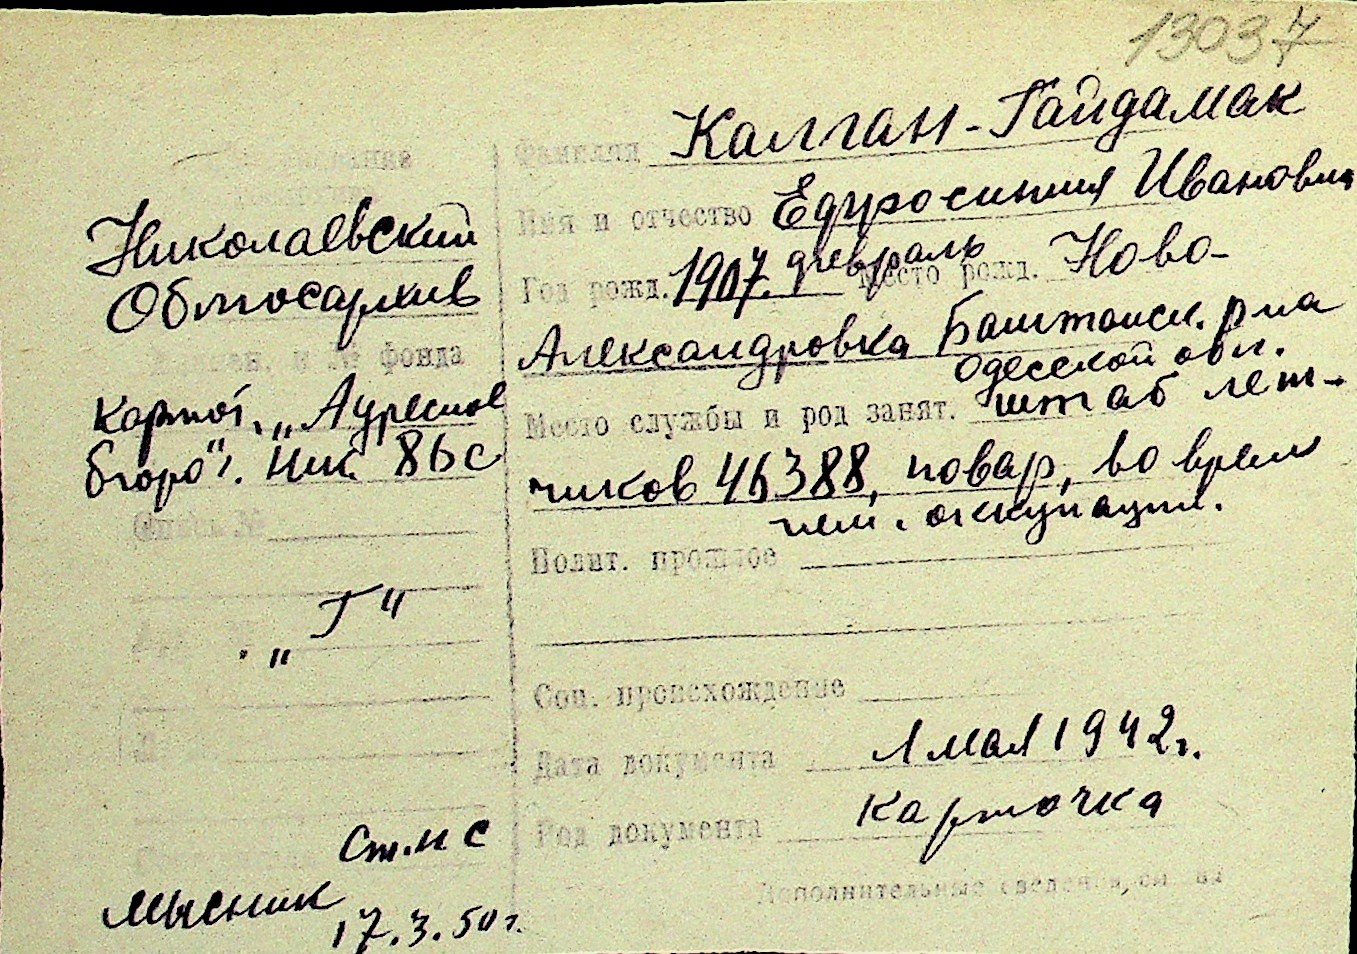 13037
Фамилия Калган-Гайдамак
Имя и отчество Ефросиния Ивановна
Год рожд. 1907. февраль Место рожд. Ново-
Александровка Баштанск. р-на
Одесской обл.
Место службы и род занят. штаб лет-
чиков 46388, повар, во время
нем. оккупации.
Полит. прошлое
Соц. происхождение
Дата документа 1 мая 1942г.
Род документа карточка
Дополнительные сведения, см. на
Николаевский
Облгосархив
и № фонда
картот. „Адресное
бюро". Ник. 86с
Опись №
„Г"
Ст. н с
Мысник
17.3.50г.